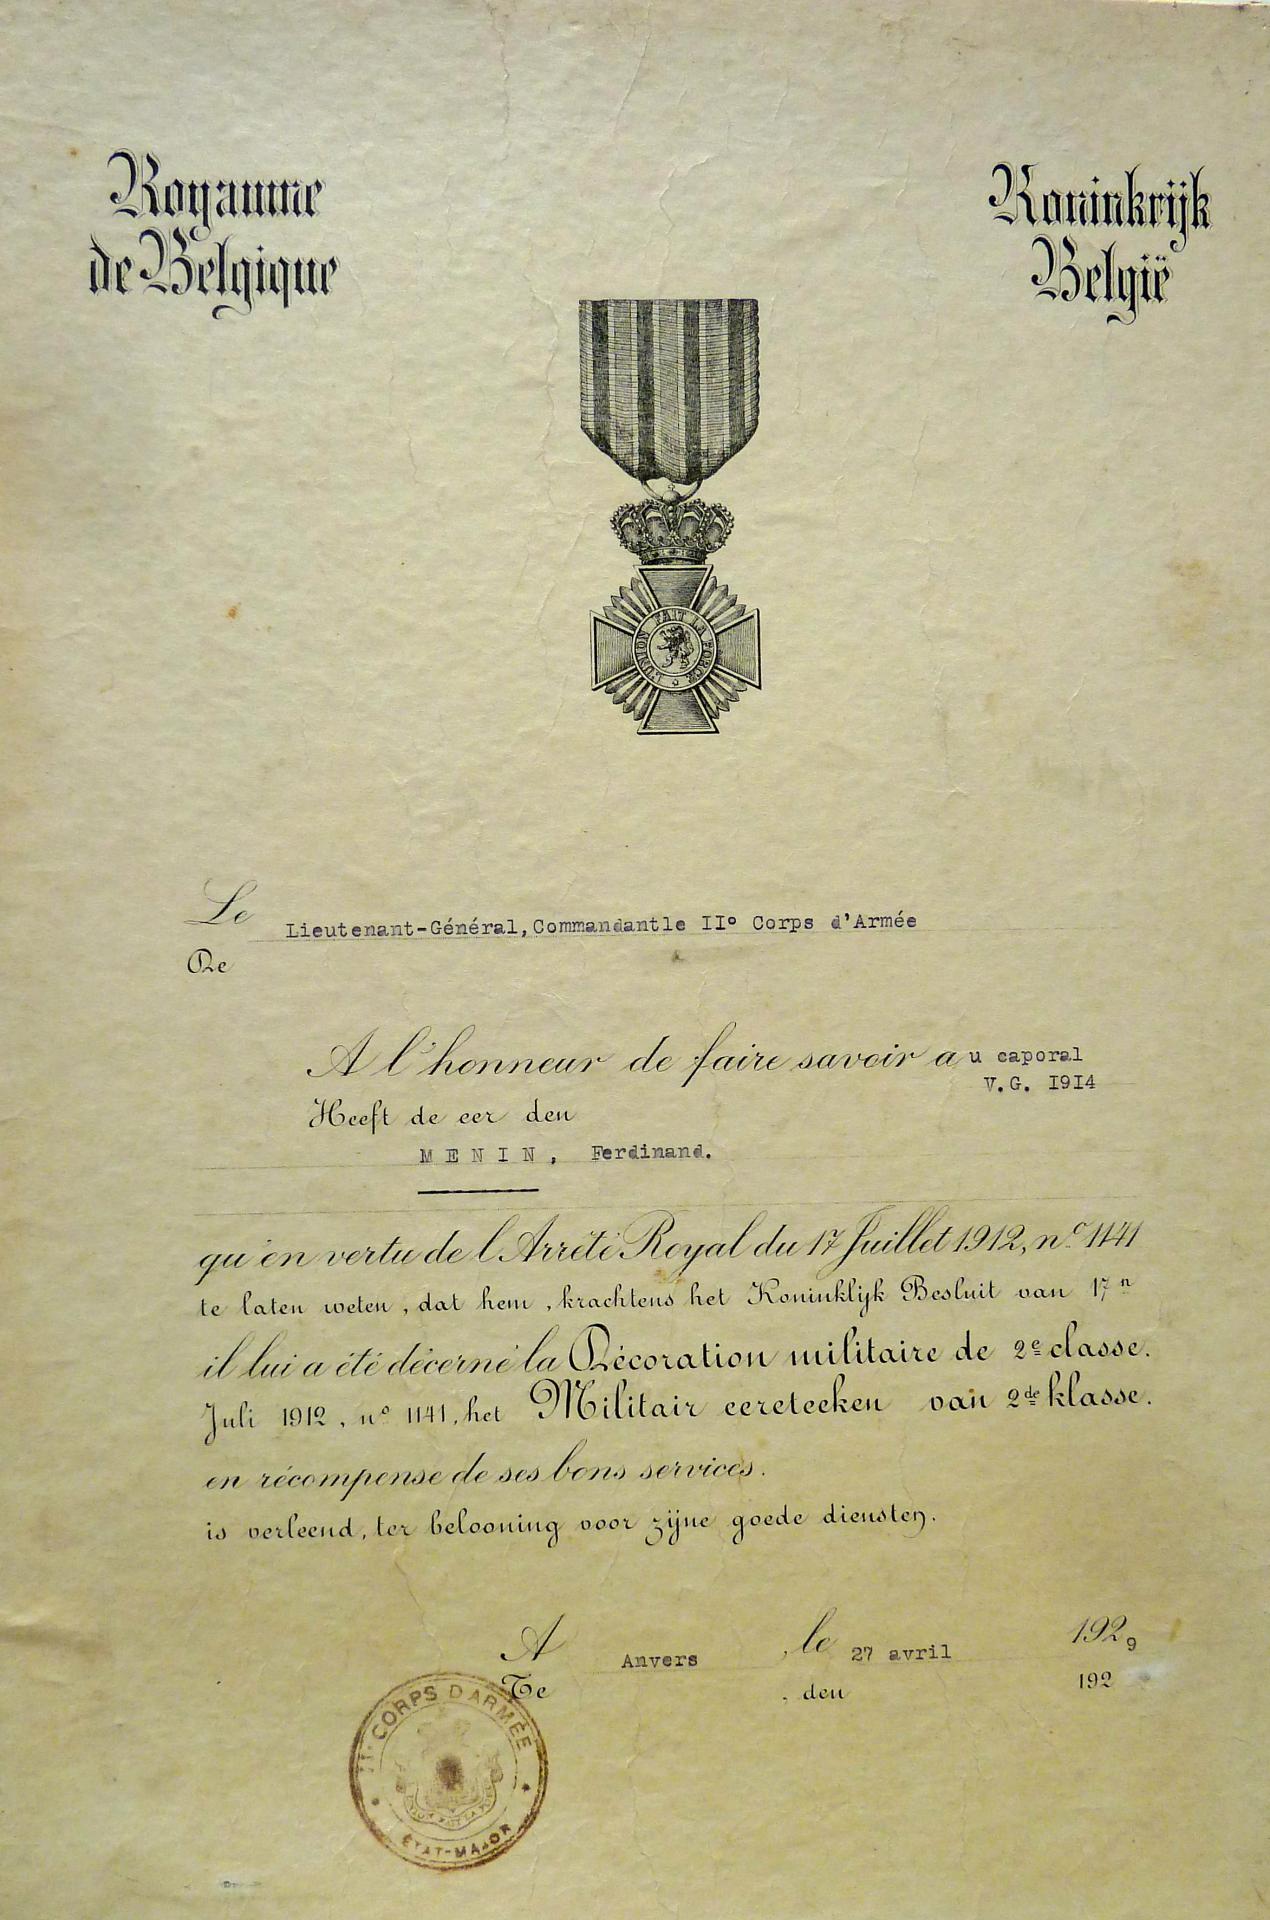 Royaume
de Belgique
Koninkrijk
België
L'UNION FAIT LA FORCE
Le Lieutenant-Général, Commandantle IIº Corps d'Armée
De
A l'honneur de faire savoir au caporal
V.G. 1914
Heeft de eer den
MENIN, Ferdinand.
qu'en vertu de l'Arrêté Royal du 17 Juillet 1912, nº 1141
te laten weten, dat hem, krachtens het Koninklijk Besluit van 17n
il lui a été décerné la Décoration militaire de 2e classe.
Juli 1912, nº 1141, het Militair eereteeken van 2de klasse.
en récompense de ses bons services.
is verleend, ter belooning voor zijne goede diensten.
A Anvers, le 27 avril 1929
Te , den 192
IIe CORPS D'ARMÉE
ÉTAT-MAJOR